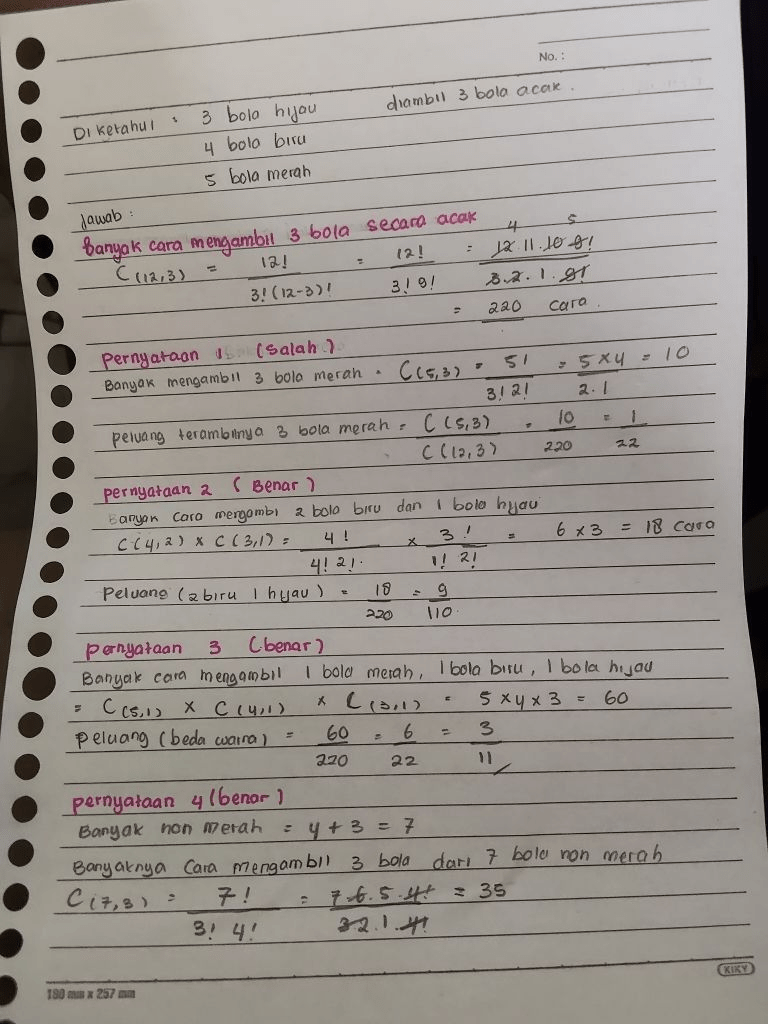 No. :
Diketahui : 3 bola hijau diambil 3 bola acak.
4 bola biru
5 bola merah
Jawab :
Banyak cara mengambil 3 bola secara acak
C(12,3) = 12! / 3!(12-3)! = 12! / 3! 9! = 12.11.10 9! / 3.2.1.9!
4 5
= 220 cara.
Pernyataan 1 (Salah)
Banyak mengambil 3 bola merah = C(5,3) = 5! / 3! 2! = 5×4 / 2.1 = 10
Peluang terambilnya 3 bola merah = C(5,3) / C(12,3) = 10 / 220 = 1 / 22
pernyataan 2 (Benar)
Banyak cara mengambi 2 bola biru dan 1 bola hijau
C(4,2) × C(3,1) = 4! / 4! 2! × 3! / 1! 2! = 6 × 3 = 18 cara
Peluang (2 biru 1 hijau) = 18 / 220 = 9 / 110
pernyataan 3 (benar)
Banyak cara mengambil 1 bola merah, 1 bola biru, 1 bola hijau
= C(5,1) × C(4,1) × C(3,1) = 5 × 4 × 3 = 60
Peluang (beda warna) = 60 / 220 = 6 / 22 = 3 / 11
pernyataan 4 (benar)
Banyak non merah = 4 + 3 = 7
Banyaknya Cara mengambil 3 bola dari 7 bola non merah
C(7,3) = 7! / 3! 4! = 7.6.5.4! / 3 2.1.4! = 35
KIKY
180 mm x 257 mm